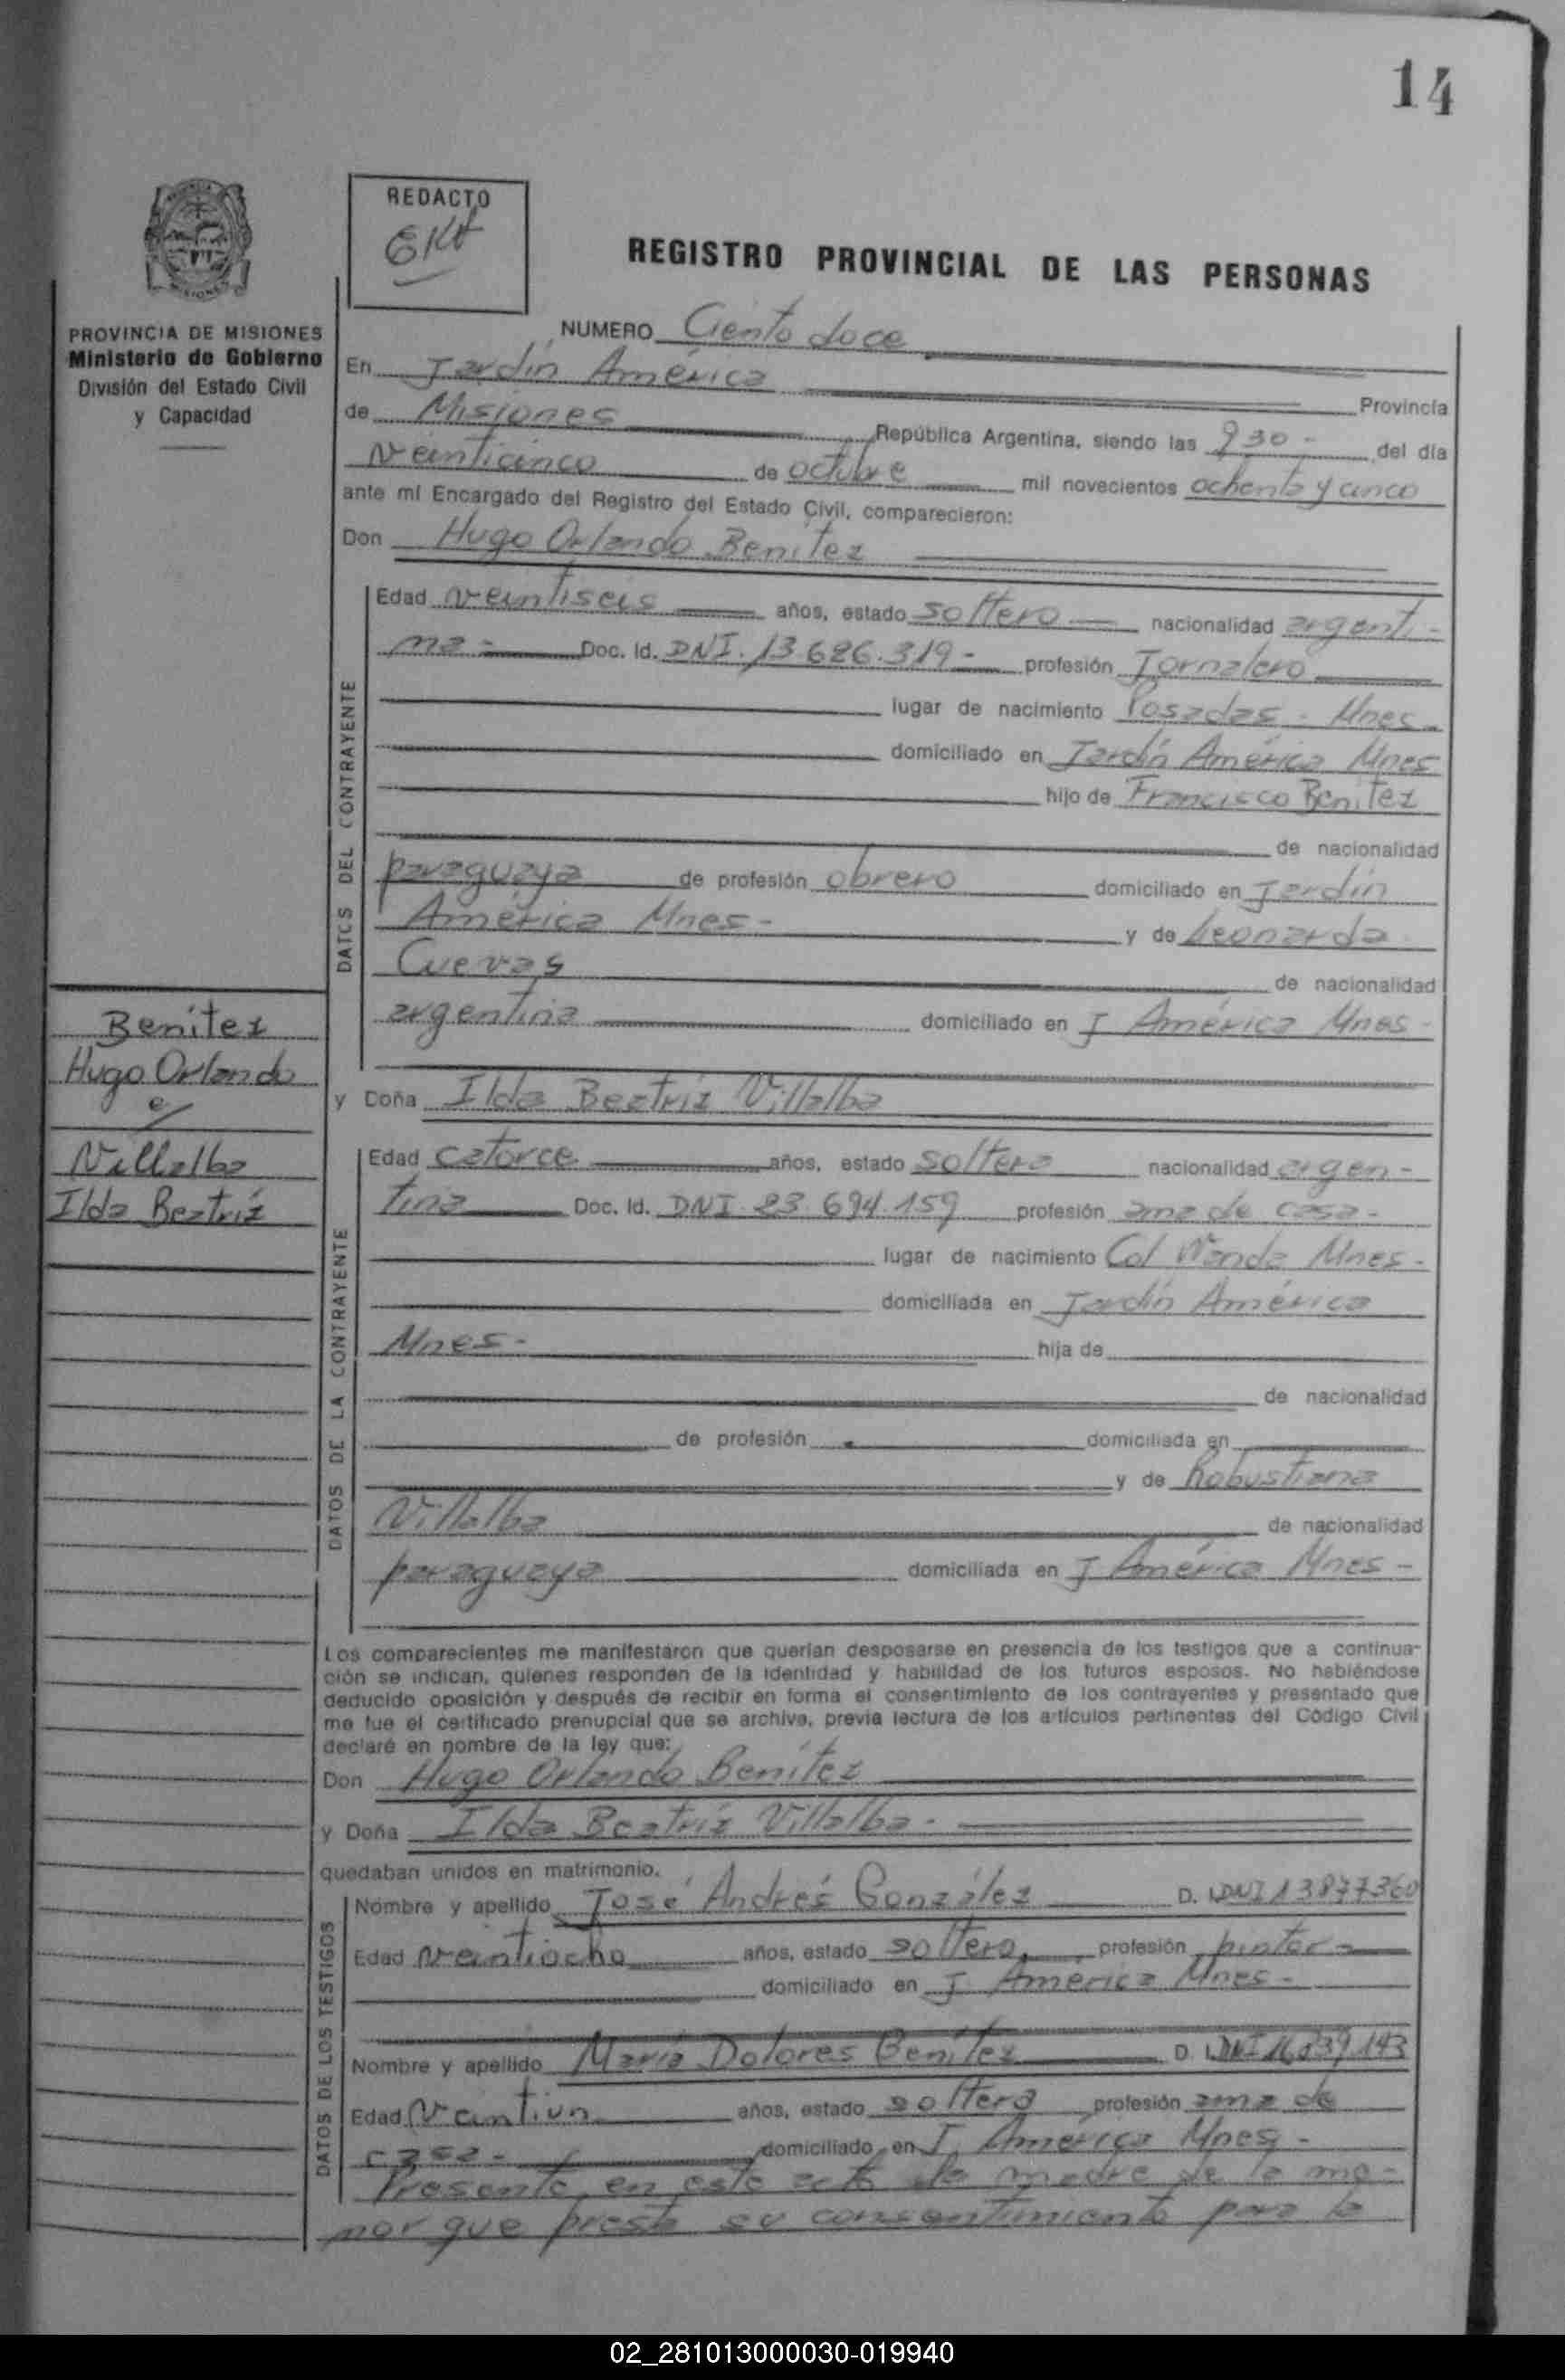 14
REDACTO
REGISTRO PROVINCIAL DE LAS PERSONAS
PROVINCIA DE MISIONES
Ministerio de Gobierno
División del Estado Civil
y Capacidad
NUMERO Ciento doce
En Jardín América Provincia
de Misiones República Argentina, siendo las 9 30 - del día
Veinticinco de octubre mil novecientos ochenta y cinco
ante mí Encargado del Registro del Estado Civil, comparecieron:
Don Hugo Orlando Benítez
DATOS DEL CONTRAYENTE
Edad veintiseis años, estado soltero nacionalidad argenti-
na - Doc. Id. DNI. 13.626.319 - profesión Jornalero
lugar de nacimiento Posadas - Mnes -
domiciliado en Jardín América Mnes
hijo de Francisco Benítez
de nacionalidad
paraguaya de profesión obrero domiciliado en Jardín
América Mnes - y de Leonarda
Cuevas de nacionalidad
argentina domiciliado en J América Mnes -
Benítez
Hugo Orlando
c/
Villalba
Ilda Beatríz
y Doña Ilda Beatríz Villalba
DATOS DE LA CONTRAYENTE
Edad catorce años, estado soltera nacionalidad argen-
tina Doc. Id. DNI. 23.694.159 profesión ama de casa -
lugar de nacimiento Col Wanda Mnes -
domiciliada en Jardín América
Mnes - hija de
de nacionalidad
de profesión domiciliada en
y de Robustiana
Villalba de nacionalidad
paraguaya domiciliada en J América Mnes -
Los comparecientes me manifestaron que querían desposarse en presencia de los testigos que a continua-
ción se indican, quienes responden de la identidad y habilidad de los futuros esposos. No habiéndose
deducido oposición y después de recibir en forma el consentimiento de los contrayentes y presentado que
me fue el certificado prenupcial que se archiva, previa lectura de los artículos pertinentes del Código Civil
declaré en nombre de la ley que:
Don Hugo Orlando Benítez
y Doña Ilda Beatríz Villalba -
quedaban unidos en matrimonio.
DATOS DE LOS TESTIGOS
Nombre y apellido José Andrés González D. I. DNI 13877360
Edad veintiocho años, estado soltero profesión pintor -
domiciliado en J América Mnes -
Nombre y apellido María Dolores Benítez D. I. DNI
Edad Veintiun años, estado soltera profesión ama de
casa - domiciliado en J. América Mnes -
Presente en este acto la madre de la me-
nor que presta su consentimiento para la
02_281013000030-019940